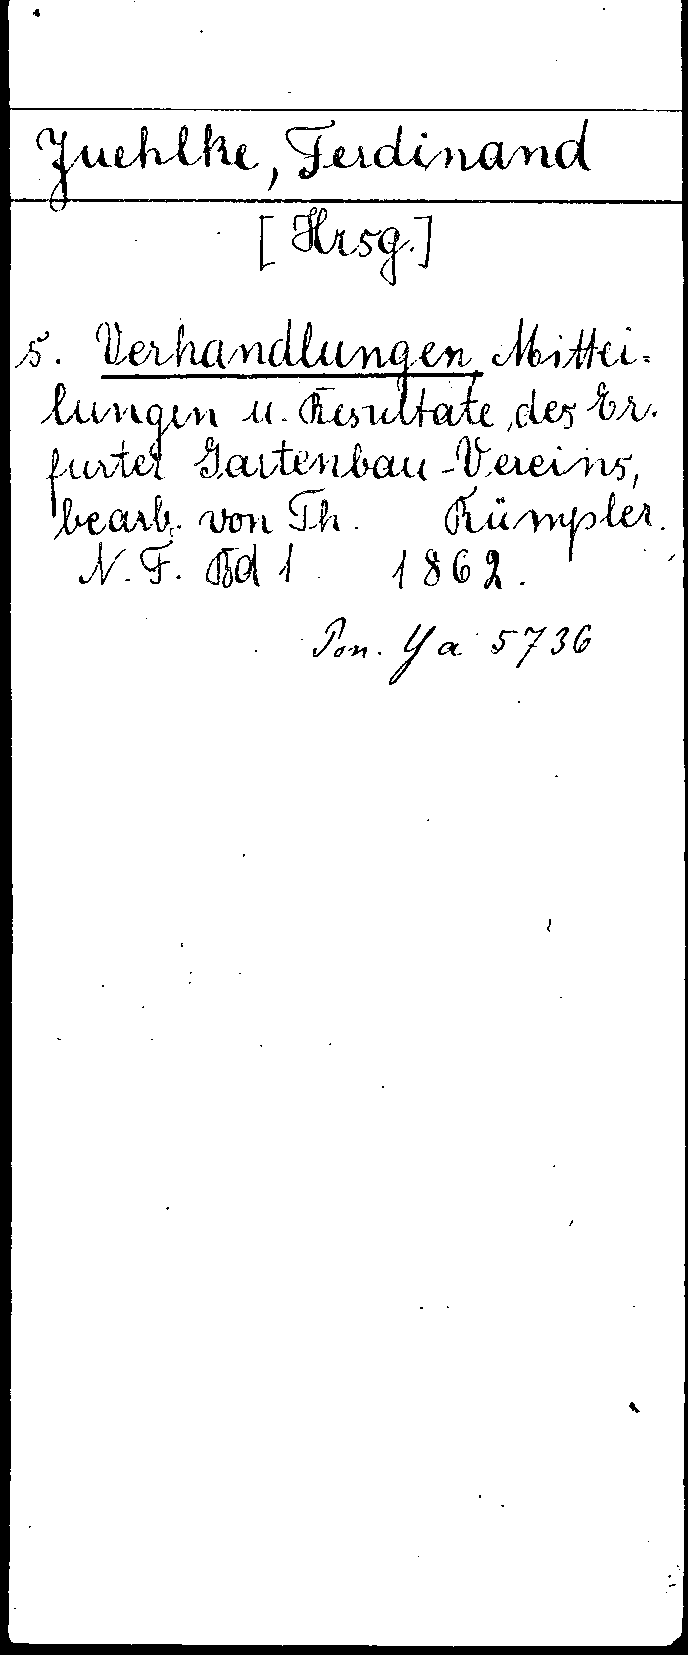 Juehlke, Ferdinand
[Hrsg.]
5. Verhandlungen, Mittei-
lungen u. Resultate, des Er-
furter Gartenbau-Vereins,
bearb. von Th. Rümpler.
N. F. Bd 1 1862.
Pon. Ya 5736